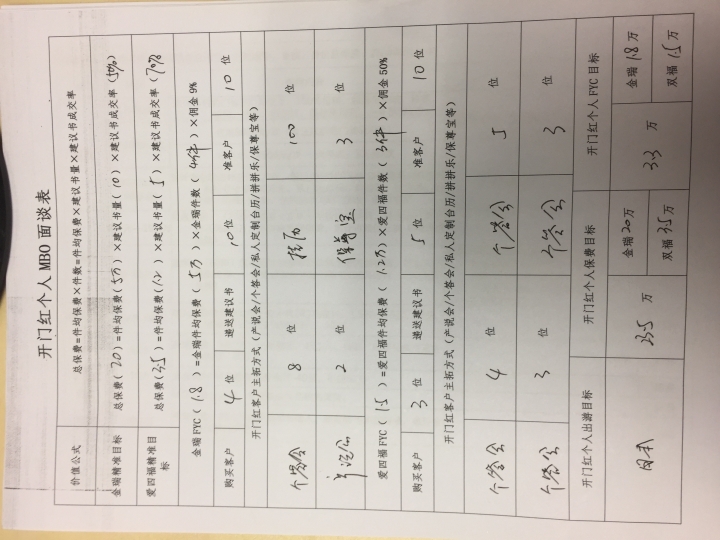 开门红个人 MBO 面谈表
价值公式 总保费=件均保费×件数=件均保费×建议书量×建议书成交率
金瑞精准目标 总保费(20)=件均保费(5万)×建议书量(10)×建议书成交率(50%)
爱四福精准目标 总保费(3.5)=件均保费(1.2)×建议书量(5)×建议书成交率(70%)
金瑞 FYC(1.8)=金瑞件均保费(5万)×金瑞件数(4件)×佣金 9%
购买客户 4 位 递送建议书 10 位 准客户 10 位
开门红客户主拓方式(产说会/个答会/私人定制台历/拼拼乐/保尊宝等)
个答会 8 位 挂历 100 位
产说会 2 位 保尊宝 3 位
爱四福 FYC(1.5)=爱四福件均保费(1.2万)×爱四福件数(3件)×佣金 50%
购买客户 3 位 递送建议书 5 位 准客户 10 位
开门红客户主拓方式(产说会/个答会/私人定制台历/拼拼乐/保尊宝等)
个答会 4 位 个答会 5 位
个答会 3 位 个答会 3 位
开门红个人出游目标 开门红个人保费目标 开门红个人 FYC 目标
日本 23.5 万 金瑞 20 万 3.3 万 金瑞 1.8 万
双福 3.5 万 双福 1.5 万